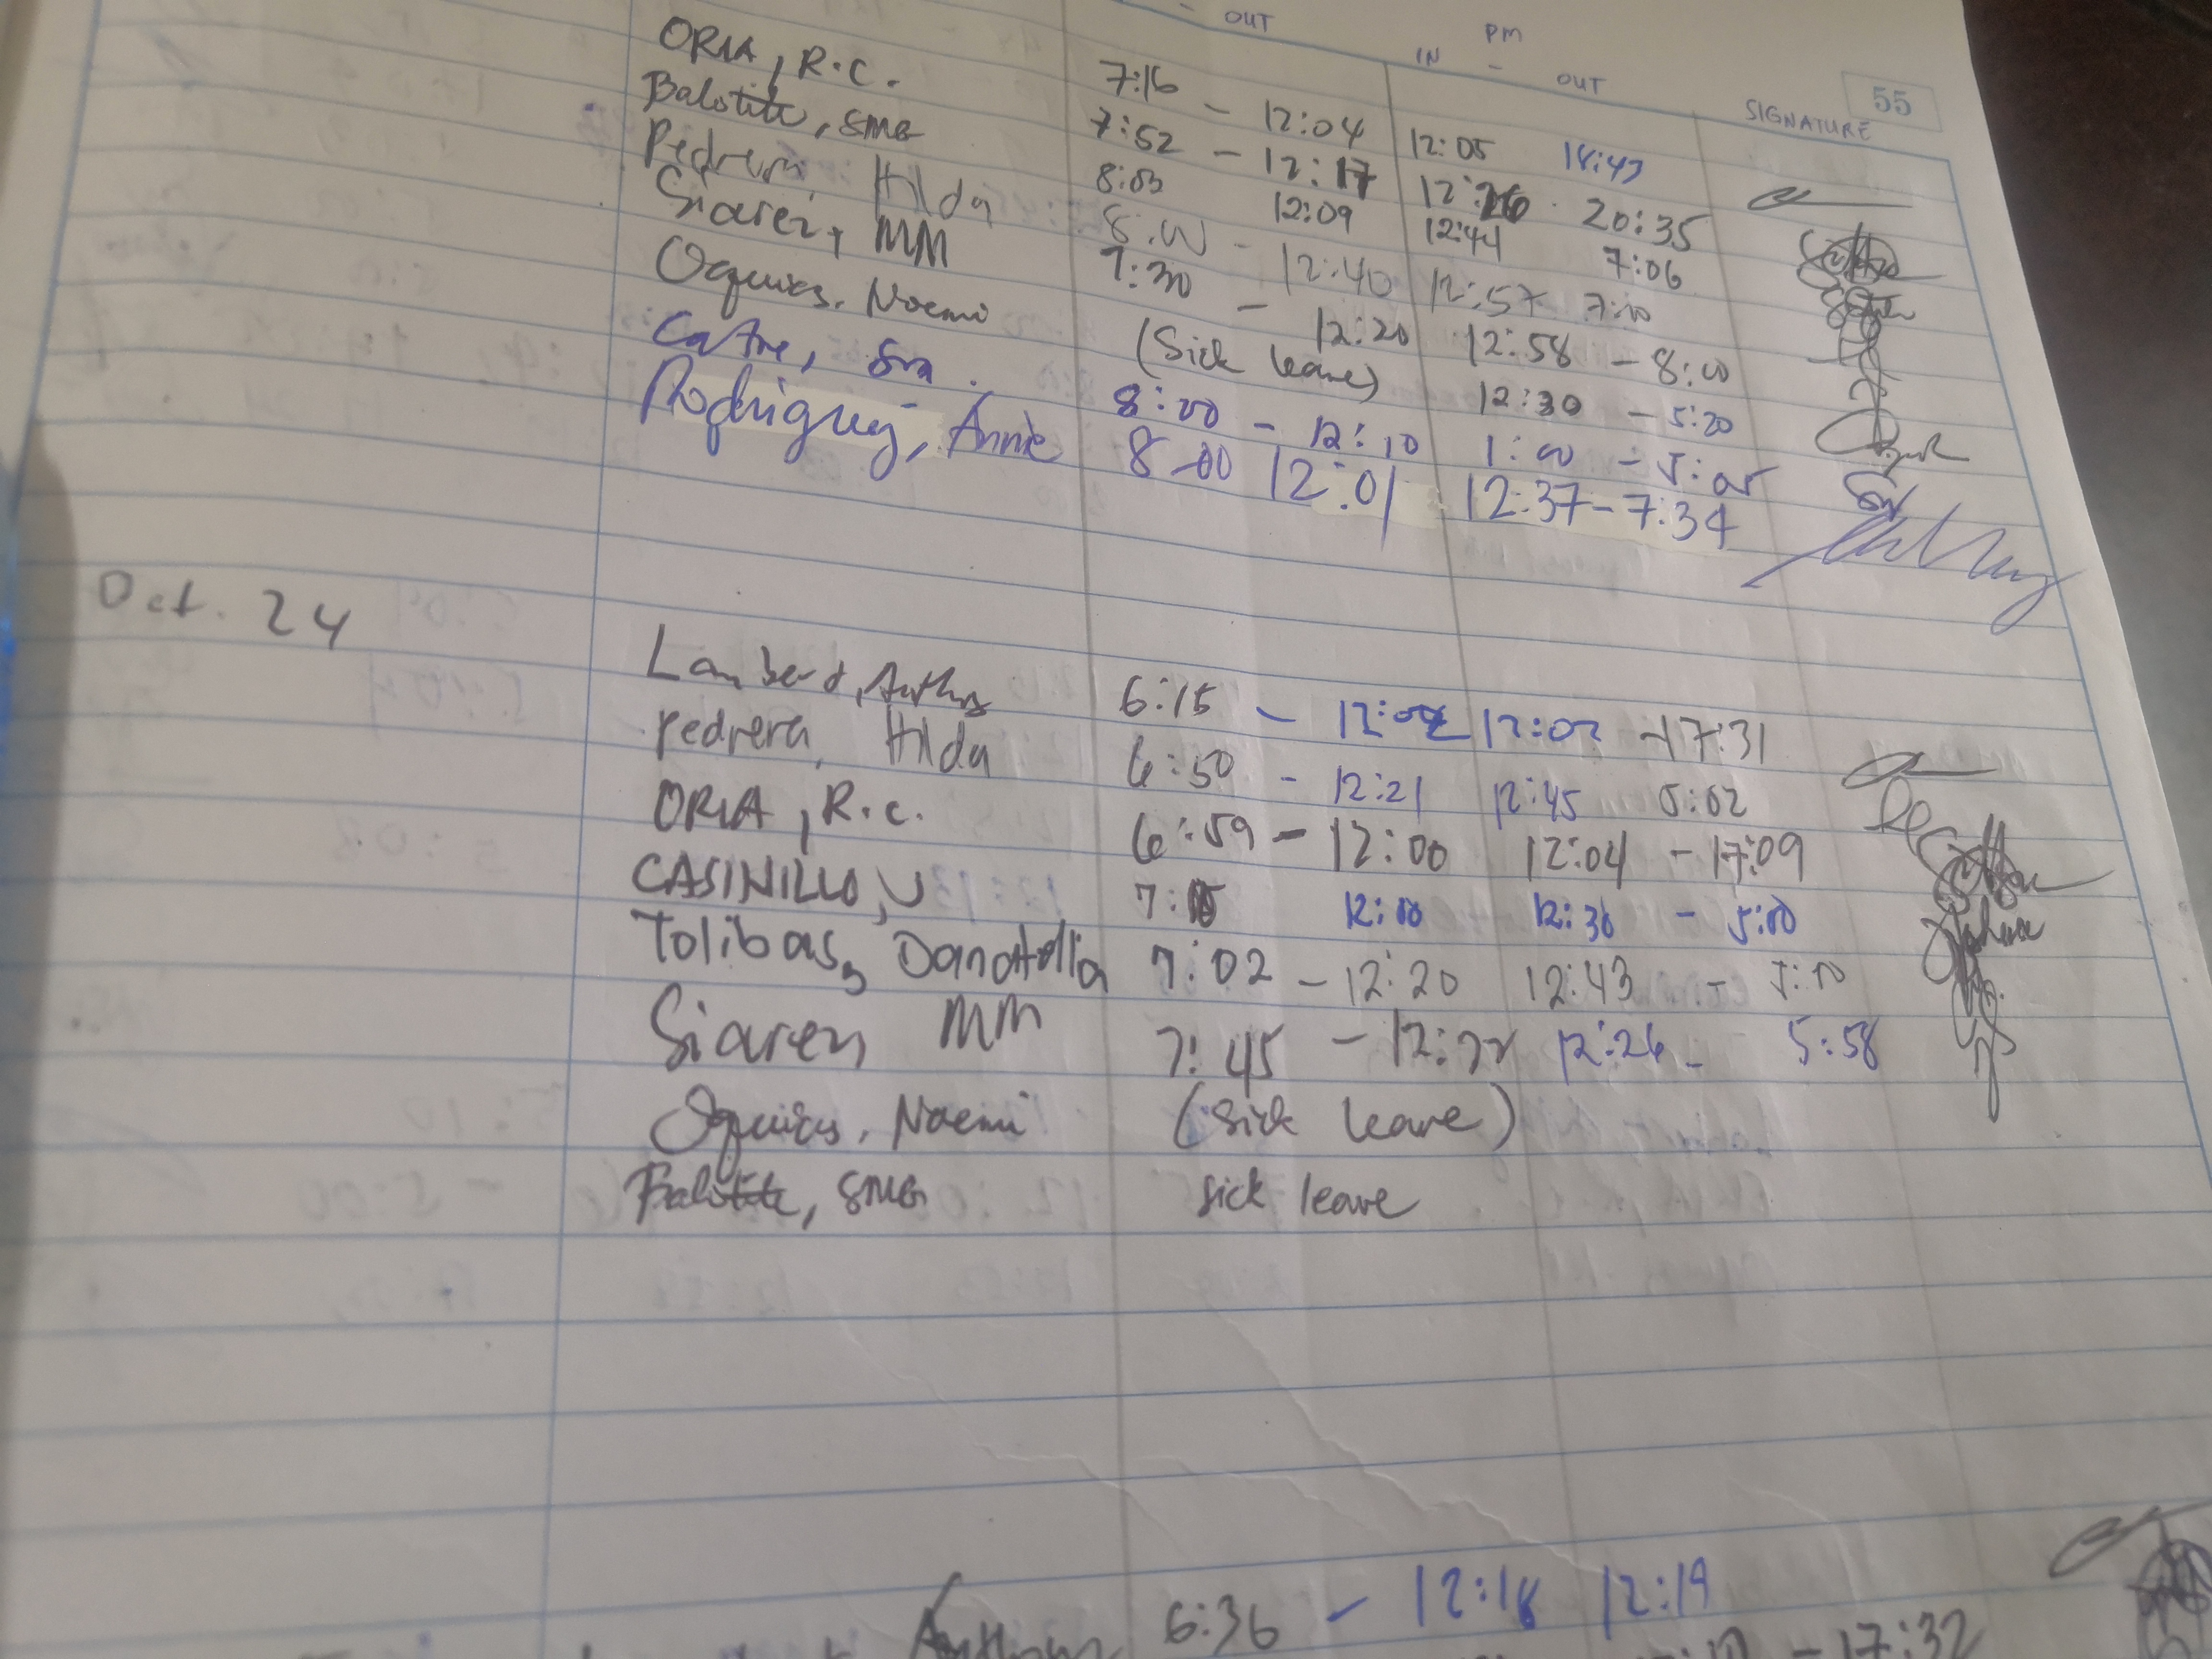 OUT PM
IN - OUT SIGNATURE 55
ORIA, R.C. 7:16 - 12:04 12:05 18:43
Balotite, SMG 7:52 - 12:17 20:35
Pedrera, Hilda 8:03 12:09 12:44 7:06
Siarez, MM 8:00 - 12:40 12:57 7:10
7:30 - 12:20 12:58 - 8:00
Noemi (Sick leave) 12:30 - 5:20
8:00 - 12:10 1:00 - 5:05
Rodriguez, Annie 8-00 12:01 12:37-7:34
Oct. 24
Lambert, Anthony 6:15 - 12:02 -17:31
Pedrera, Hilda 6:50 - 12:21 12:45 5:02
ORIA, R.C. 6:59 - 12:00 12:04 - 17:09
CASINILLO, J 12:00 12:30 - 5:00
Tolibas, 7:02 - 12:20 12:43 - 5:10
Siarez MM 7:45 - 12:22 12:26 - 5:58
Noemi (Sick leave)
Balotite, SMG sick leave
Anthony 6:36 - 12:18 12:19
- 17:32